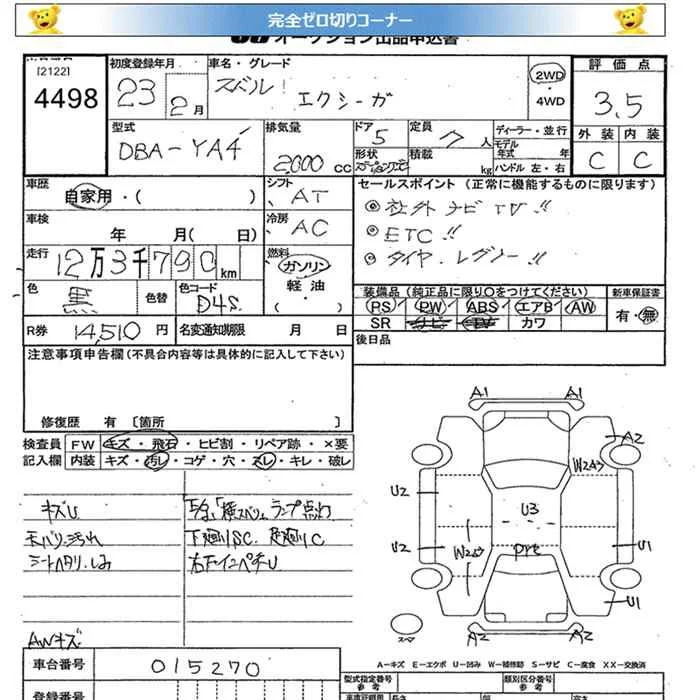 完全ゼロ切りコーナー
オークション出品申込書
[2122]
4498
初度登録年月
23 2月
車名・グレード
スバル!
エクシーガ
2WD
・
4WD
評価点
3.5
外装 内装
C C
型式
DBA-YA4
排気量
2,000 cc
ドア
5
形状
定員
7 人
積載
kg
ディーラー・並行
モデル
年式 年
ハンドル 左・右
車歴
自家用・( )
シフト
AT
セールスポイント (正常に機能するものに限ります)
◎ 社外ナビTV!!
◎ ETC!!
◎ タイヤ・レグノー!!
車検
年 月( 日)
冷房
AC
走行
12万3千790km
燃料
ガソリン
・
軽油
( )
色
黒
色替
色コード
D4S
装備品 (純正品に限り○をつけてください)
PS PW ABS エアB AW
SR ナビ TV カワ
新車保証書
有・無
R券 14,510 円
名変通知期限 月 日
後日品
注意事項申告欄(不具合内容等は具体的に記入して下さい)
修復歴 有 [箇所 ]
検査員
記入欄
FW キズ・飛石・ヒビ割・リペア跡・×要
内装 キズ・汚れ・コゲ・穴・スレ・キレ・破し
キズU
天バリ汚れ
シートヘタリ、しみ
AWキズ
「横スベリ」ランプ点灯
下廻りSC 足廻りC
右下インペチU
A1 A1
A2
W2
U2
U3
U2
W2
U1
U1
A2 A2
スペア
A-キズ E-エクボ U-凹み W-補修跡 S-サビ C-腐食 XX-交換済
車台番号
015270
登録番号
型式指定番号
参考
類別区分番号
参考
長さ 幅 高さ